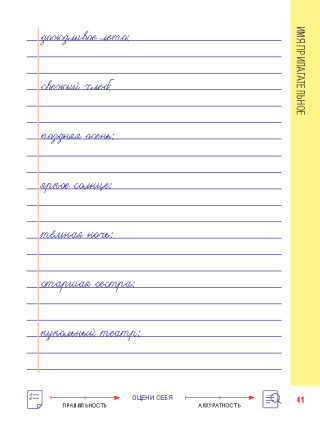 ИМЯ ПРИЛАГАТЕЛЬНОЕ
дождливое лето:
свежий хлеб:
поздняя осень:
яркое солнце:
тёмная ночь:
старшая сестра:
кукольный театр:
ПРАВИЛЬНОСТЬ
ОЦЕНИ СЕБЯ
АККУРАТНОСТЬ
41